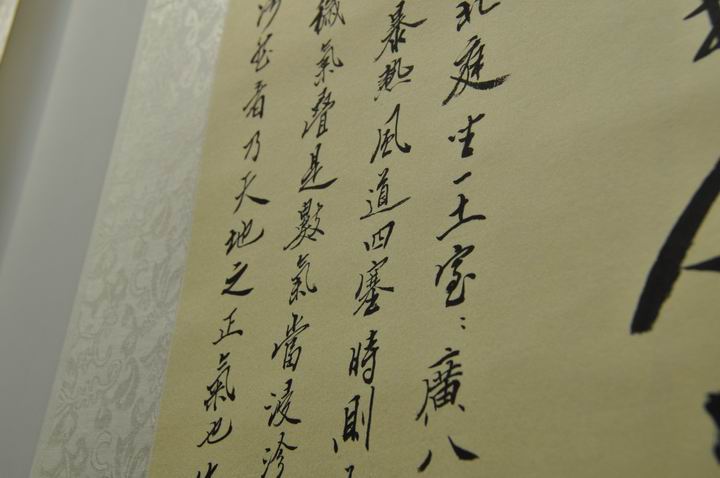 北庭坐一土室〻廣八
暴熱風道四塞時則
穢氣疊是數氣當浸沴
然者乃天地之正氣也